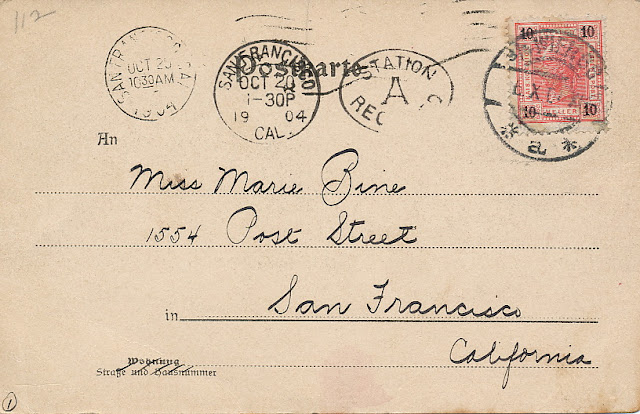 112
SAN FRANCISCO, CAL.
OCT 20
10:30 AM
1904
SAN FRANCISCO
OCT 20
1-30P
19 04
CAL.
Postkarte
STATION
A
REC
10 10
10 10
An
Miss Marie Bine
1554 Post Street
in San Francisco
California
Wohnung
Straße und Hausnummer
1